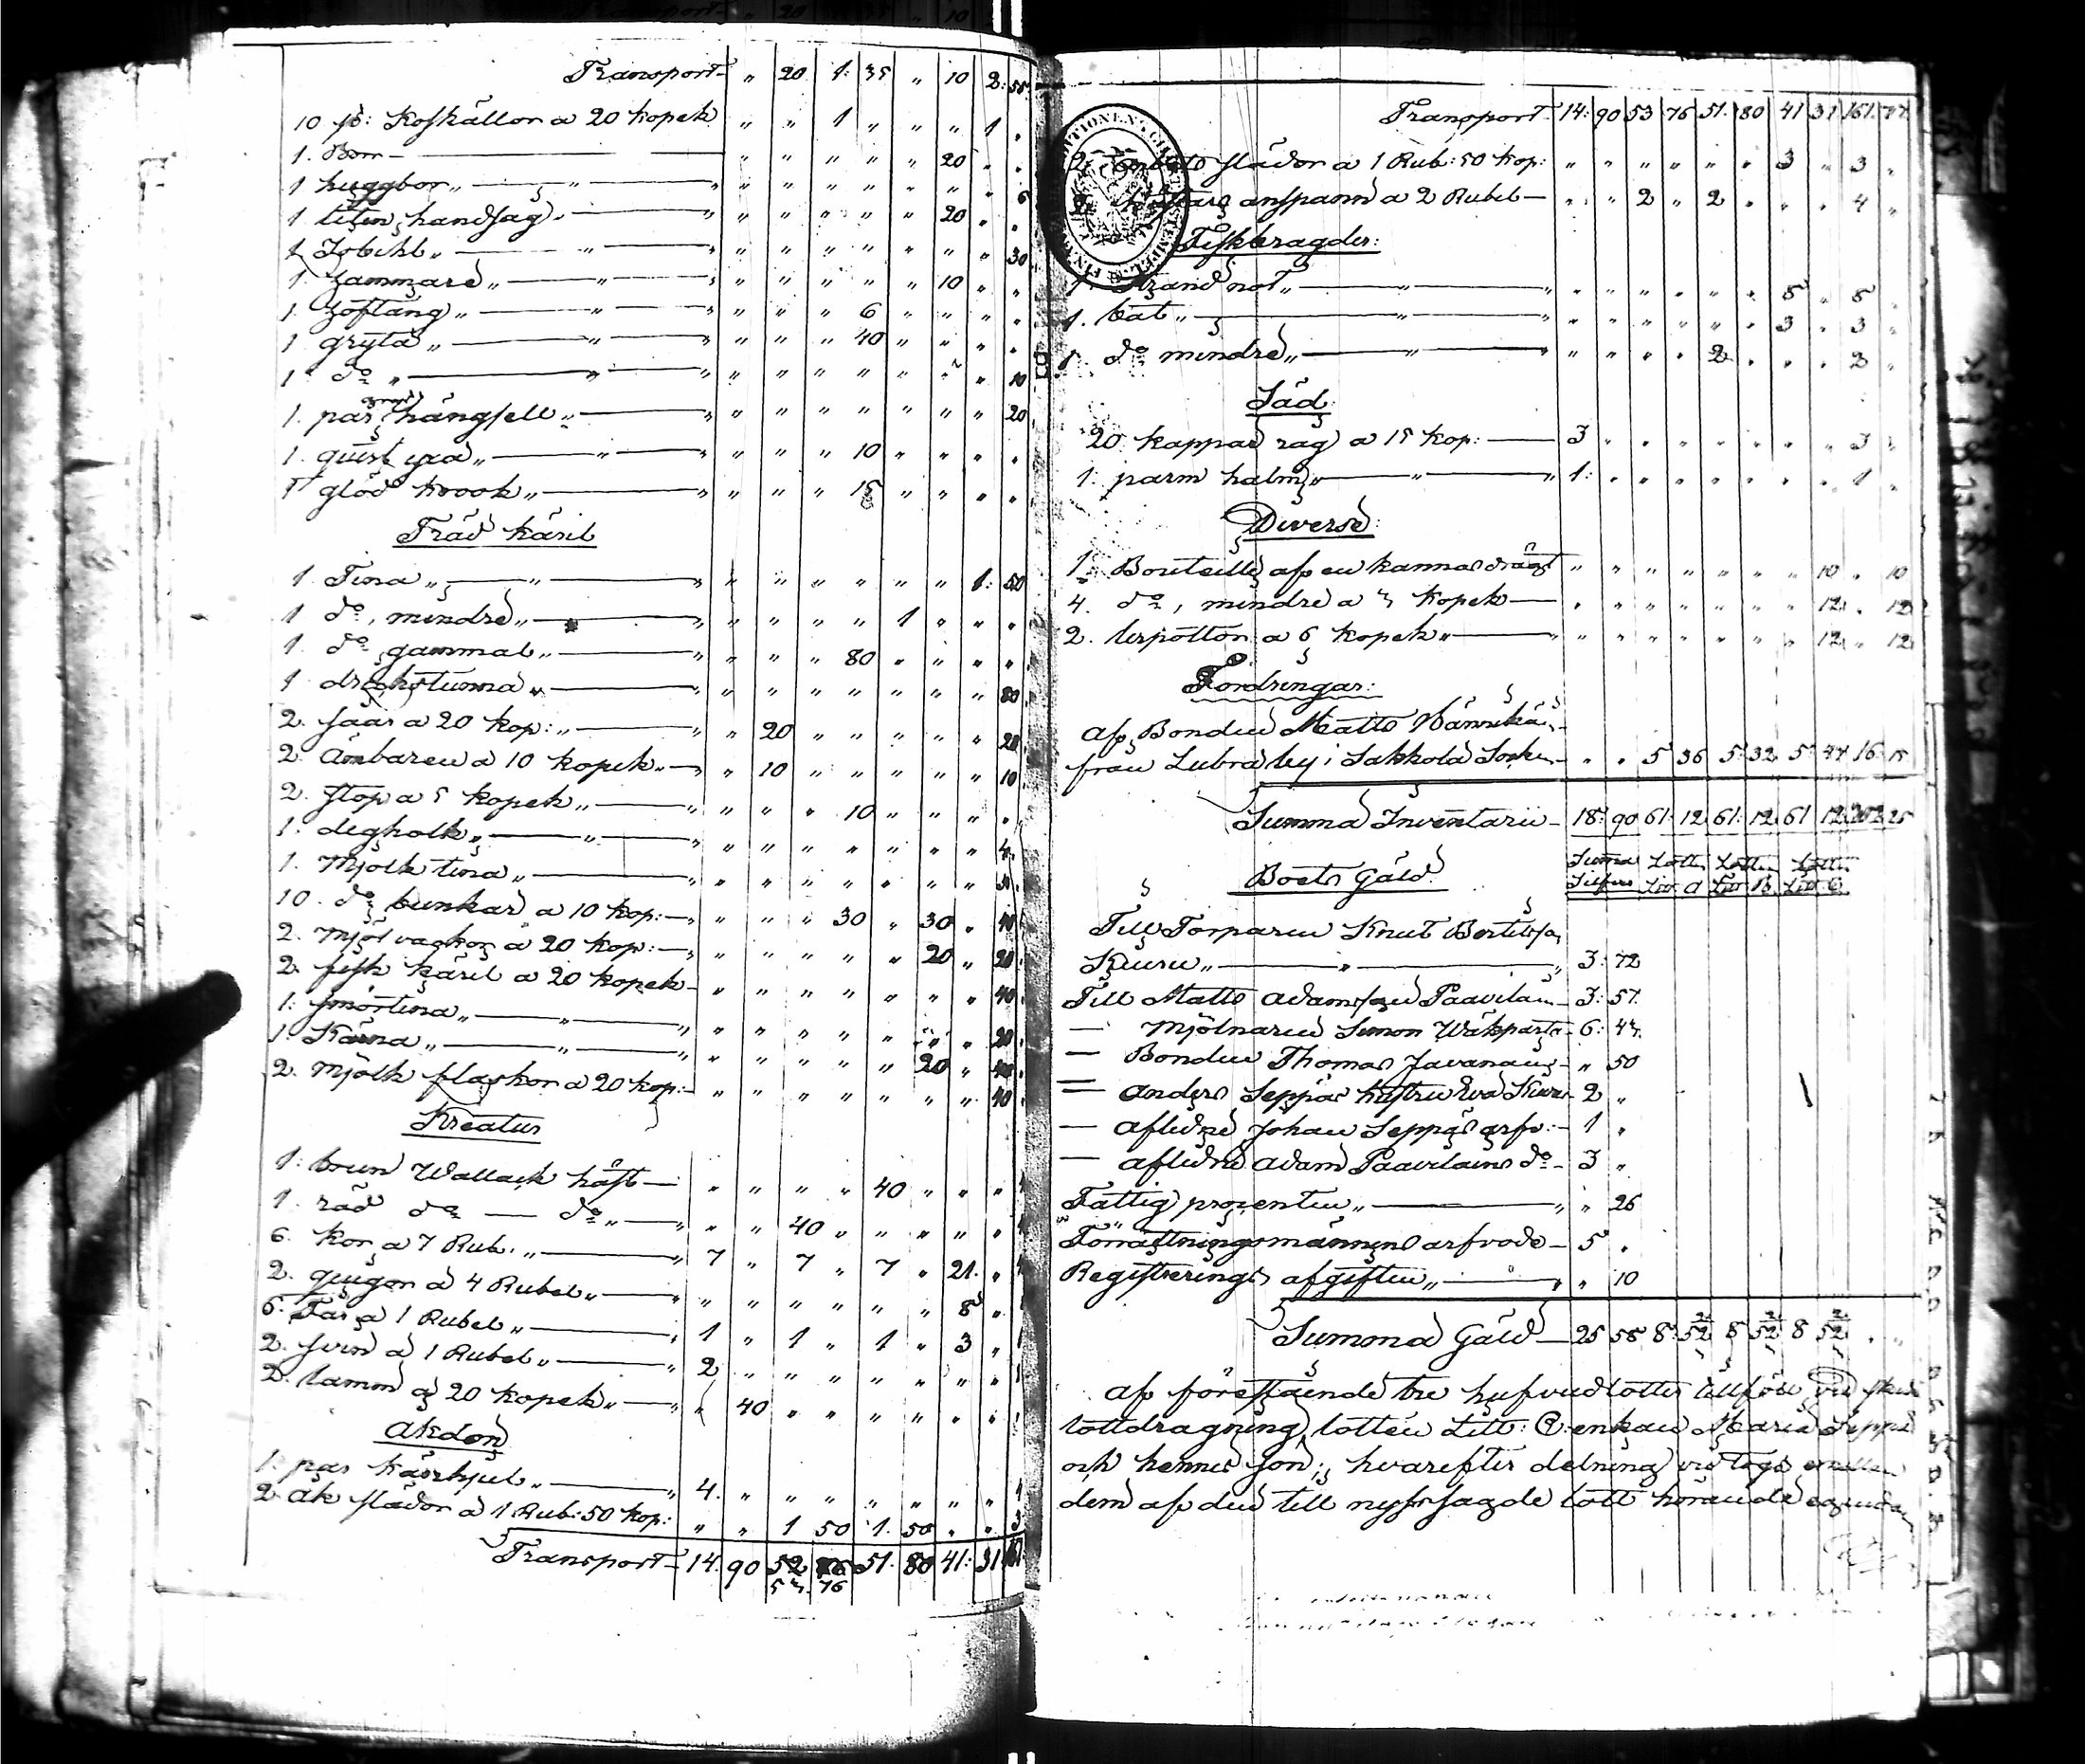 Transport " 20 1: 35 " 10 2: 55
10 st: Koskällor a 20 kopek " " 1 " " " 1 "
1. Bom " " " " " 20 " "
1 huggbor " " " " " " " " 6
1 liten handsåg " " " " " 20 " "
1 " " " " " " " 30
1. hammare " " " " " " 10 " "
1. hoftång " " " " 6 " " " "
1 gryta " " " " 40 " " " "
1 do " " " " " " " " 10
1. par hängsell " " " " " " " 20
1. quist yxa " " " " 10 " " " "
1 glöd krook " " " " 15 " " " "
Träd käril
1 Tina " " " " " " " 1: 50
1 do, mindre " " " " " 1 " " "
1. do gammal " " " " 80 " " " "
1 drickstunna " " " " " " " " 80
2. såar a 20 kop: " " 20 " " " " " 20
2. Ämbaren a 10 kopek " " 10 " " " " " 10
2. stop a 5 kopek " " " " 10 " " " "
1. degholk " " " " " " " " 4
1. Mjölk tina " " " " " " "
10. do bunkar a 10 kop: " " " 30 " 30 " 40
2. mjöl vackor a 20 kop: " " " " " 20 " 20
2. fisk käril a 20 kopek " " " " " " " 40
1. smörtina " " " " " " " " 20
1. Kärna " " " " " " 20 "
2. Mjölk flaskor a 20 kop: " " " " " " " 40
Kreatur
1: brun Wallack häst " " " " 40 " " "
1. röd do do " " " 40 " " " " "
6. kor a 7 Rub. " 7 " 7 " 7 " 21. "
2. qvigor a 4 Rubel " " " " " " " 8 "
6. Får a 1 Rubel " 1 " 1 " 1 " 3 "
2. svin a 1 Rubel " 2 " " " " " " "
2. lamm a 20 kopek " " 40 " " " " " "
Åkdon
1. par kärrhjul " 4. " " " " " " "
2. åk slädor a 1 Rub: 50 kop: " " 1 50 1. 50 " " 3
Transport 14. 90 52 51. 80 41: 31
53. 76
Transport 14: 90 53 76 51. 80 41 31 161. 77
2. slädor a 1 Rub: 50 kop: " " " " " " 3 " 3 "
2. anspann a 2 Rubel " " 2 " 2 " " " 4 "
Fiskbragder:
1. Strand not " " " " " " 5 " 5 "
1. båt " " " " " " " 3 " 3 "
1 do mindre " " " " " 2 " " " 2 "
Säd:
20 kappar råg a 15 kop: 3 " " " " " " " 3 "
1. parm halm " 1: " " " " " " " 1 "
Diverse:
1. Bouteille af en kannas drägt " " " " " " " 10 " 10
4. do, mindre a 3 kopek " " " " " " " 12 " 12
2. lerpotton a 6 kopek " " " " " " " 12 " 12
Fordringar:
af Bonden Matts
från Lubra by i Sakkola Socken " " 5 36 5 32 5 47 16 15
Summa Inventarii 18: 90 61: 12 61: 12 61 12 202 25
Boets Gäld: Summa Silfver Lotten Litt. A Lotten Litt. B. Lotten Litt. C.
Till Torparen Knut Bertilss.
Kuuru " 3: 72
Till Matts Adamsson Paavilain 3: 57.
— Mjölnaren Simon 6: 43.
— Bonden Thomas Javanain " 50
— Anders Seppäs hustru Eva Kuuru 2 "
— aflidne Johan Seppäs arfv: 1 "
— aflidne Adam Paavilains do 3 "
Fattig procenten " " 26
Förrättningsmännens arfvode 5 "
Registrerings afgiften " " 10
Summa Gäld 25 58 8 52 2/3 8 52 2/3 8 52 2/3
af förestående tre hufvudlotter tillföll vid skedd
lottdragning lotten Litt: C: enkan Maria Seppä
och hennes son; hvarefter delning vidtogs emellan
dem af den till nyssagde lott hörande egendom